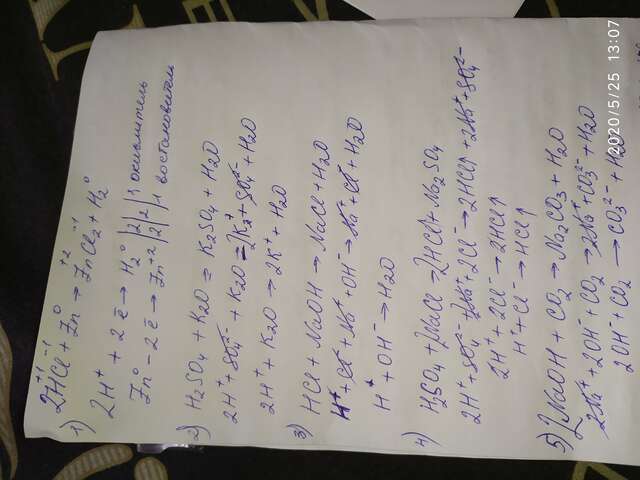 1) 2H⁺¹Cl⁻¹ + Zn⁰ → Zn⁺²Cl₂⁻¹ + H₂⁰
2H⁺ + 2ē → H₂⁰ |2|2|1 окислитель
Zn⁰ - 2ē → Zn⁺² |2|2|1 востановитель
2) H₂SO₄ + K₂O = K₂SO₄ + H₂O
2H⁺ + SO₄²⁻ + K₂O = 2K⁺ + SO₄²⁻ + H₂O
2H⁺ + K₂O → 2K⁺ + H₂O
3) HCl + NaOH → NaCl + H₂O
H⁺ + Cl⁻ + Na⁺ + OH⁻ → Na⁺ + Cl⁻ + H₂O
H⁺ + OH⁻ → H₂O
4) H₂SO₄ + 2NaCl → 2HCl↑ + Na₂SO₄
2H⁺ + SO₄²⁻ + 2Na⁺ + 2Cl⁻ → 2HCl↑ + 2Na⁺ + SO₄²⁻
2H⁺ + 2Cl⁻ → 2HCl↑
H⁺ + Cl⁻ → HCl↑
5) 2NaOH + CO₂ → Na₂CO₃ + H₂O
2Na⁺ + 2OH⁻ + CO₂ → 2Na⁺ + CO₃²⁻ + H₂O
2OH⁻ + CO₂ → CO₃²⁻ + H₂O
2020/5/25 13:07